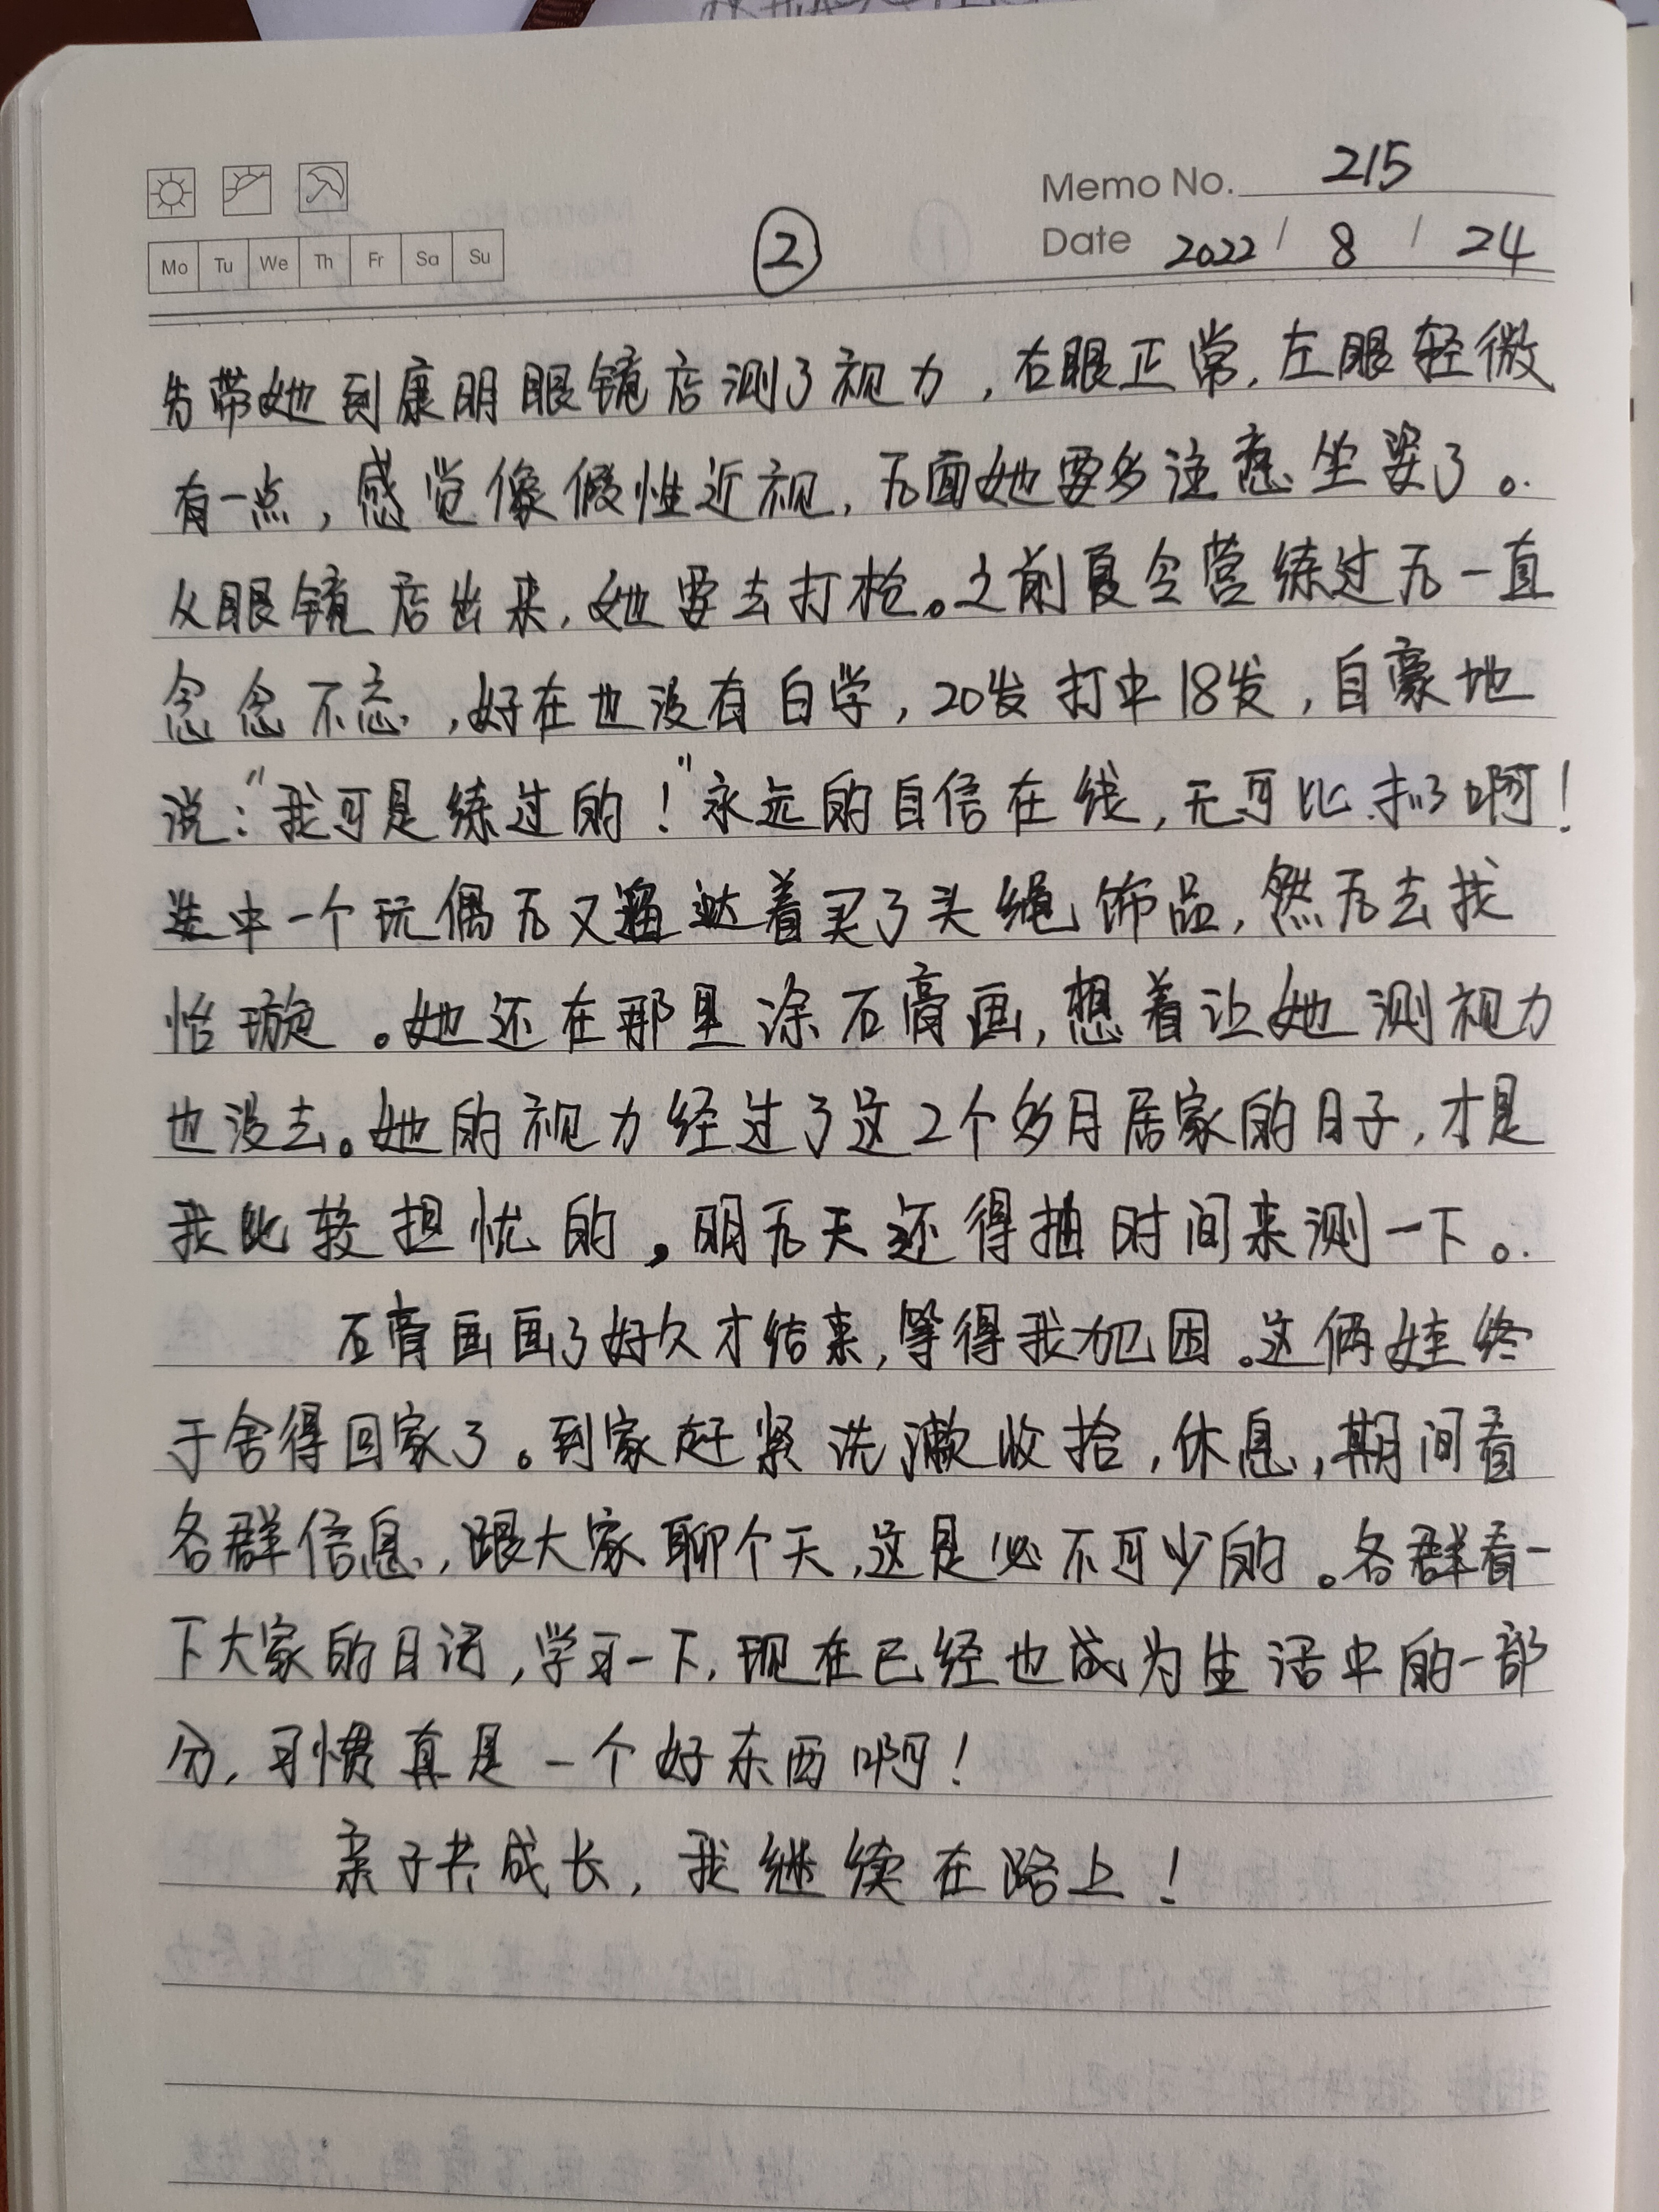 Memo No. 215
Mo Tu We Th Fr Sa Su
②
Date 2022 / 8 / 24
先带她到康明眼镜店测了视力，右眼正常，左眼轻微
有一点，感觉像假性近视，后面她要多注意坐姿了。
从眼镜店出来，她要去打枪。之前夏令营练过后一直
念念不忘，好在也没有白学，20发打中18发，自豪地
说："我可是练过的！"永远的自信在线，无可比拟啊！
选中一个玩偶后又遛达着买了头绳饰品，然后去找
怡璇。她还在那里涂石膏画，想着让她测视力
也没去。她的视力经过了这2个多月居家的日子，才是
我比较担忧的，明后天还得抽时间来测一下。
石膏画画了好久才结束，等得我力巴困。这俩娃终
于舍得回家了。到家赶紧洗漱收拾，休息，期间看
各群信息，跟大家聊个天，这是必不可少的。各群看一
下大家的日记，学习一下，现在已经也成为生活中的一部
分，习惯真是一个好东西啊！
亲子共成长，我继续在路上！